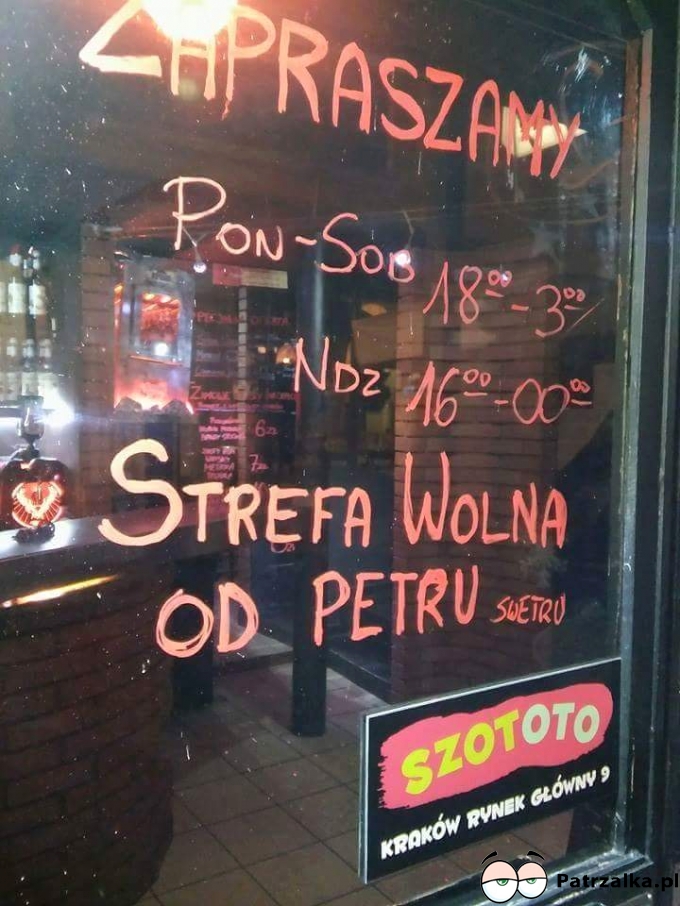 ZAPRASZAMY
PON-SOB 18⁰⁰-3⁰⁰
NDZ 16⁰⁰-00⁰⁰
STREFA WOLNA
OD PETRU SWETRU
6 zł
7 zł
SZOTOTO
KRAKÓW RYNEK GŁÓWNY 9
Patrzalka.pl